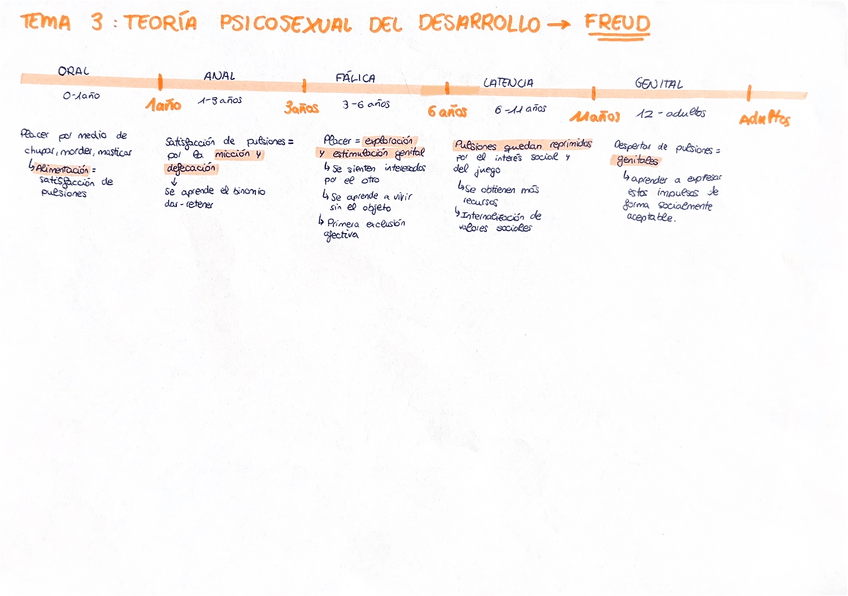 TEMA 3: TEORÍA PSICOSEXUAL DEL DESARROLLO → FREUD
ORAL
ANAL
FÁLICA
LATENCIA
GENITAL
0-1año
1año
1-3 años
3años
3-6 años
6 años
6-11 años
11años
12-adultos
Adultos
Placer por medio de
chupar, morder, masticar
↳ Alimentación =
satisfacción de
pulsiones
Satisfacción de pulsiones =
por la micción y
defecación
↓
Se aprende el binomio
dar-retener
Placer = exploración
y estimulación genital
↳ Se sienten interesados
por el otro
↳ Se aprende a vivir
sin el objeto
↳ Primera exclusión
afectiva
Pulsiones quedan reprimidas
por el interés social y
del juego
↳ Se obtienen más
recursos
↳ Internalización de
valores sociales
Despertar de pulsiones =
genitales
↳ aprender a expresar
estos impulsos de
forma socialmente
aceptable.